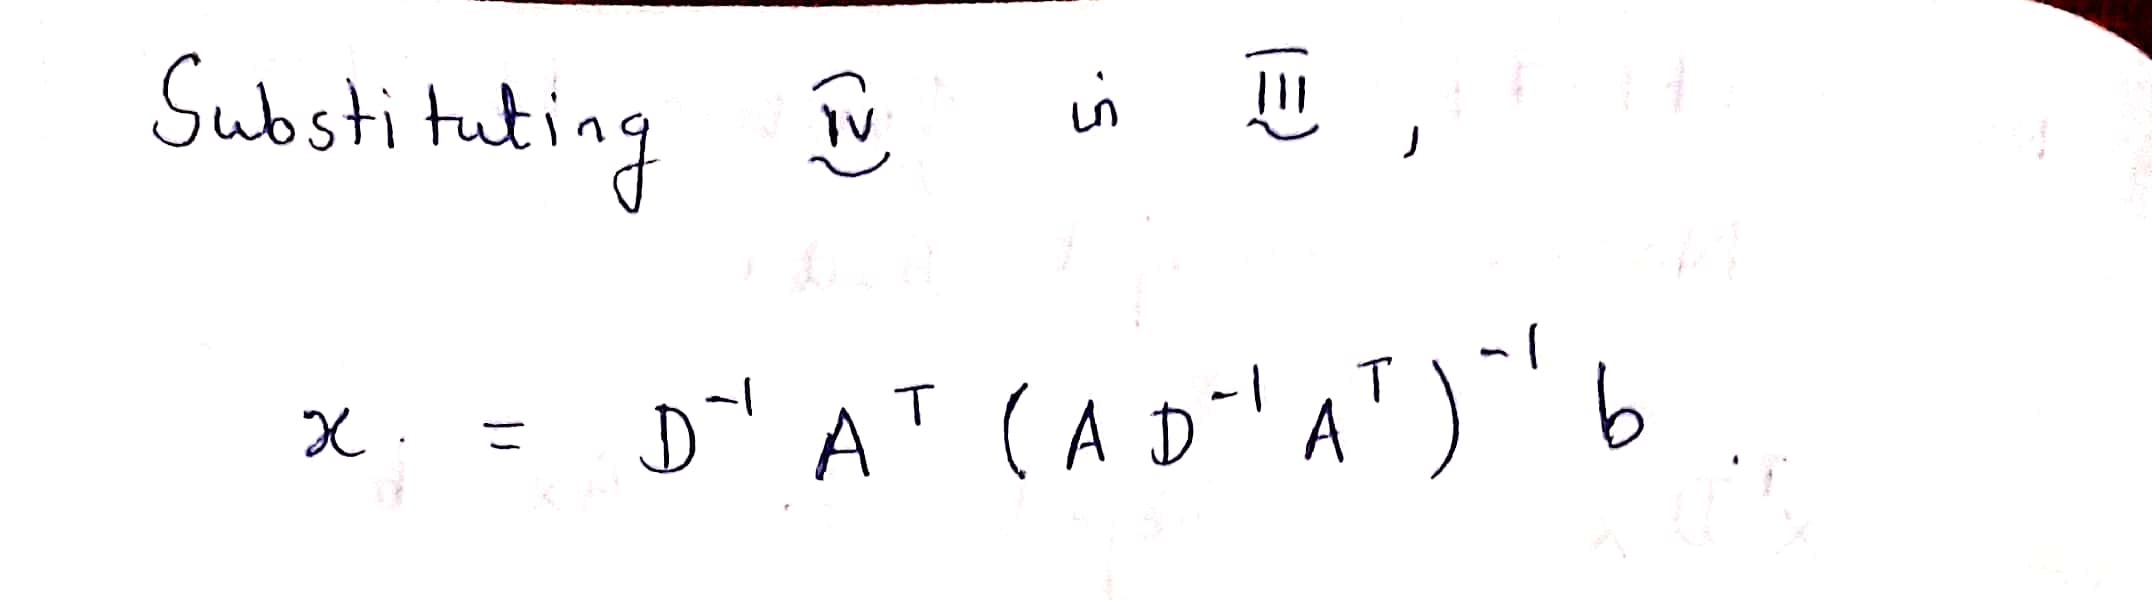 Substituting IV in III ,
x = D⁻¹ Aᵀ ( A D⁻¹ Aᵀ )⁻¹ b .